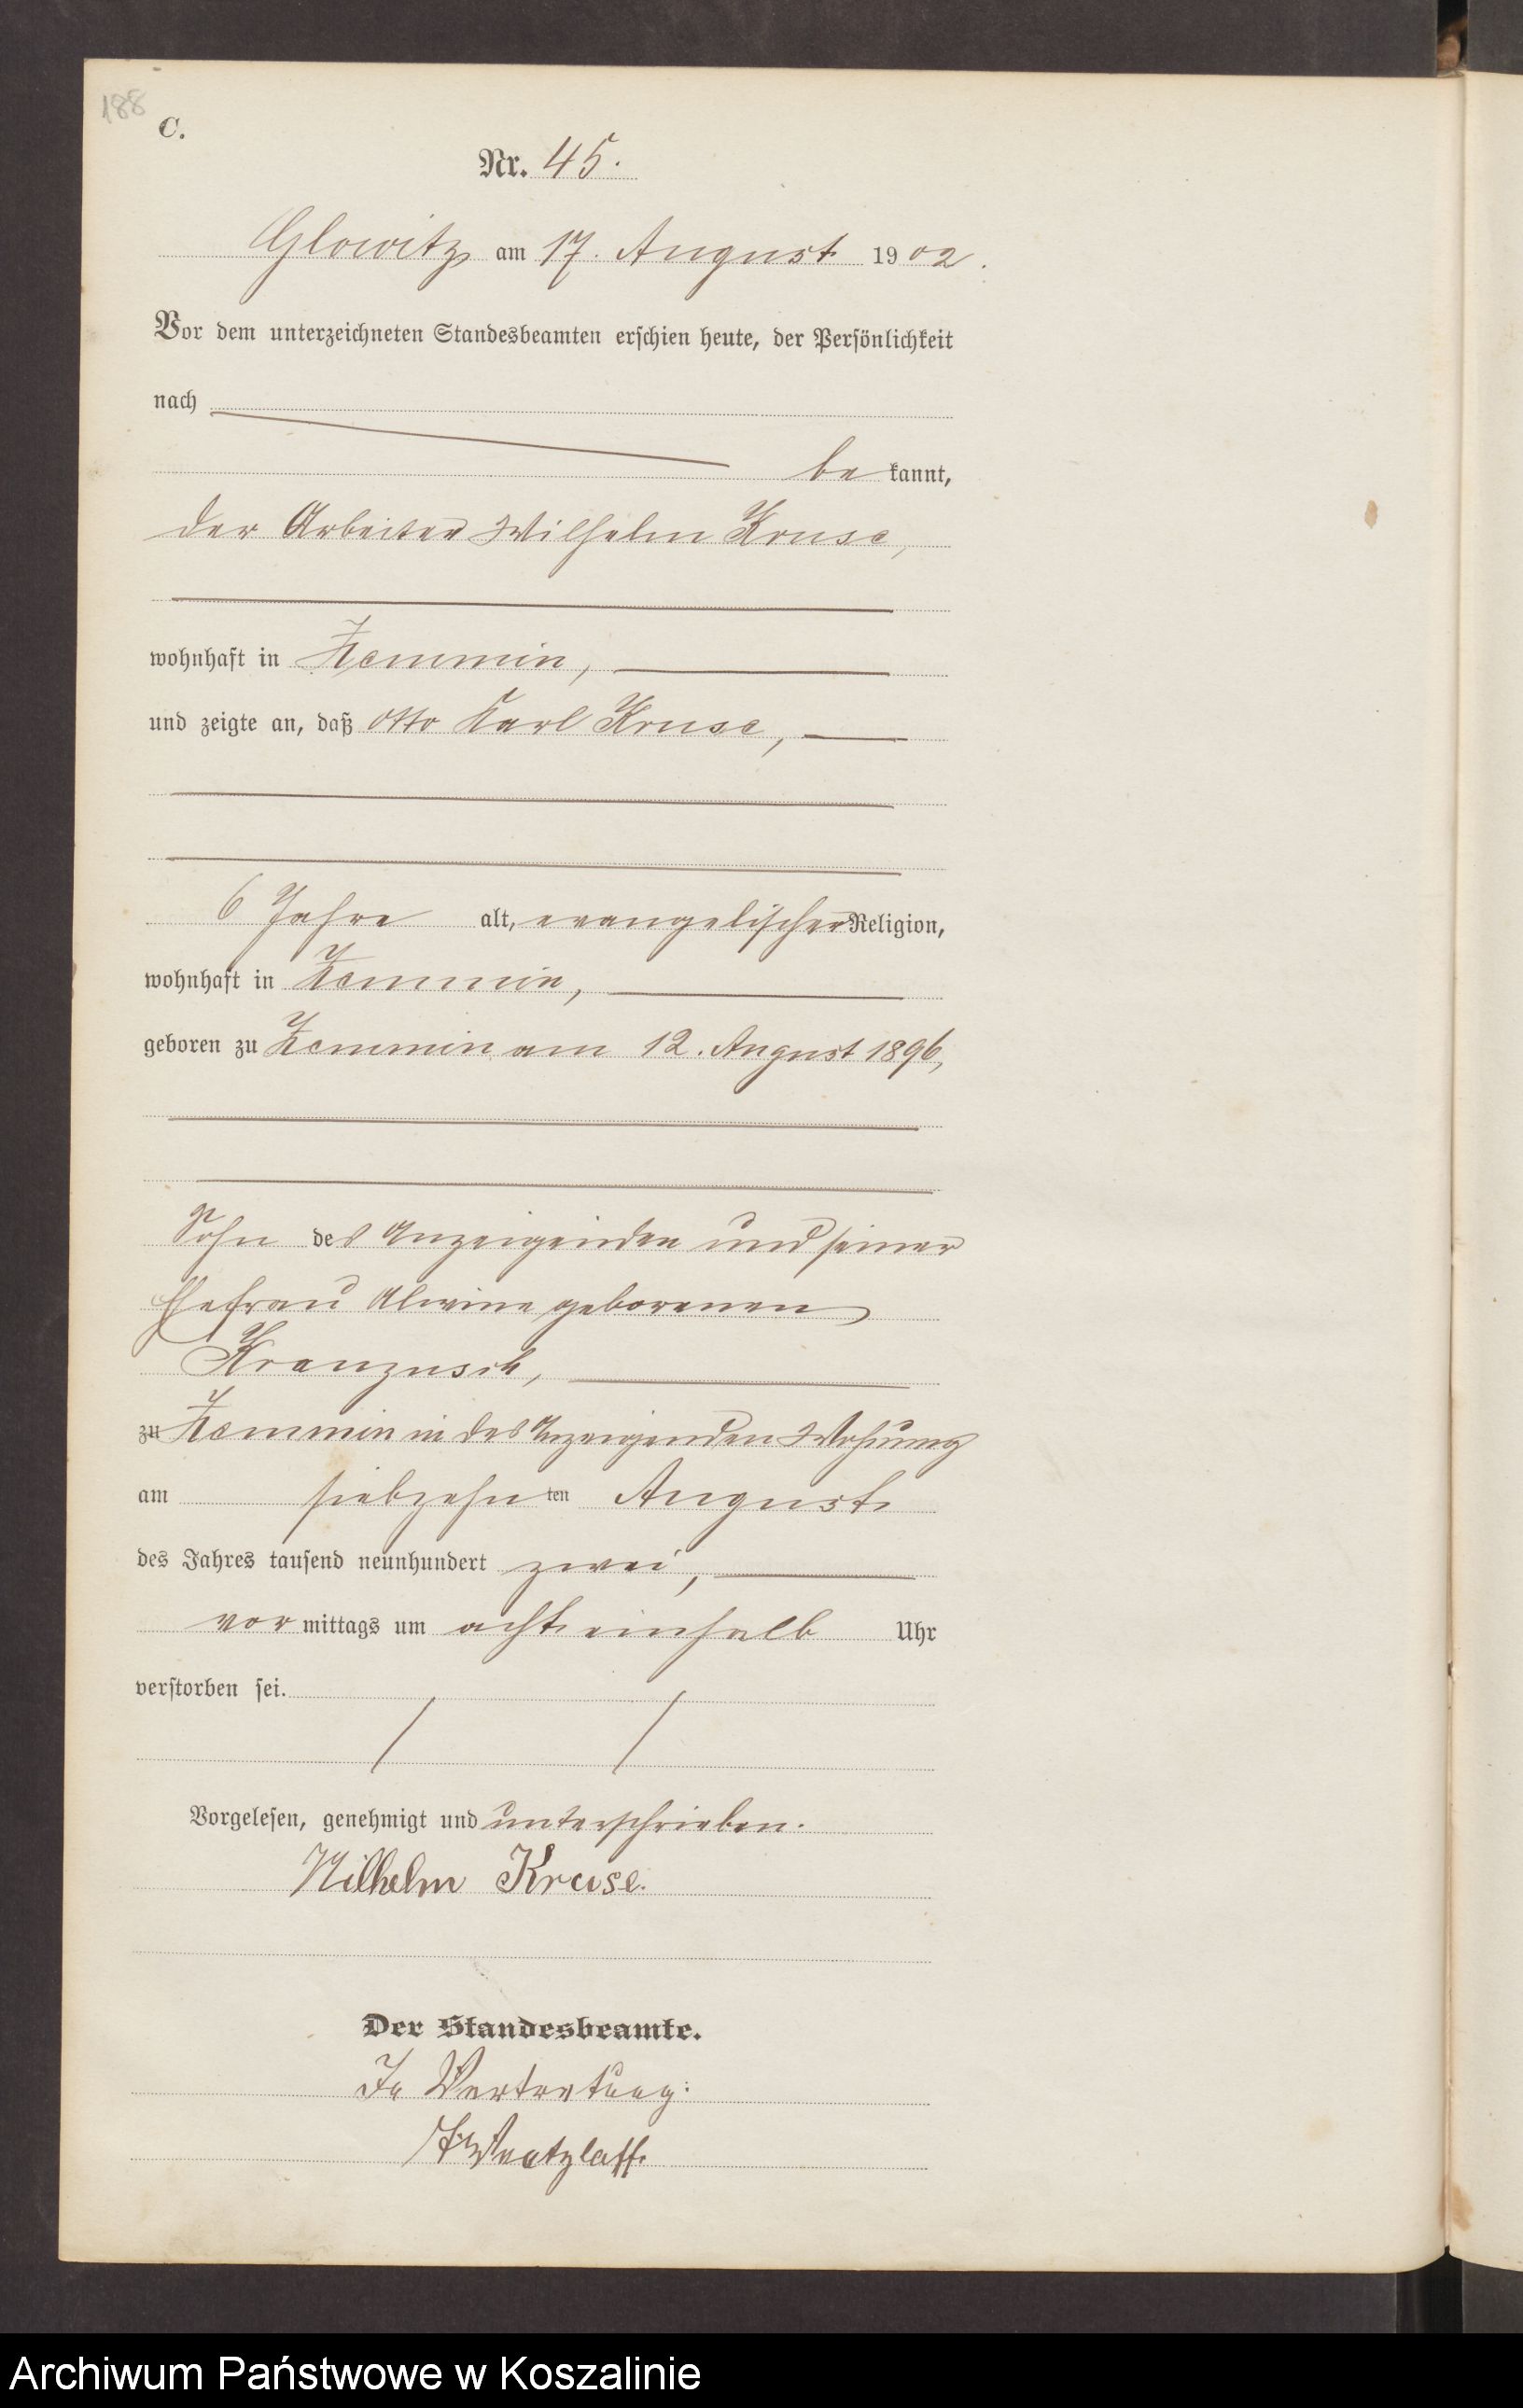 188
C.
Nr. 45.
Glowitz am 17. August 1902.
Vor dem unterzeichneten Standesbeamten erschien heute, der Persönlichkeit
nach
be kannt,
der Arbeiter Wilhelm Kruse,
wohnhaft in Zemmin,
und zeigte an, daß Otto Karl Kruse,
6 Jahre alt, evangelischer Religion,
wohnhaft in Zemmin,
geboren zu Zemmin am 12. August 1896,
Sohn des Anzeigenden und seiner
Ehefrau Alwine geborenen
Kranzusch,
zu Zemmin in des Anzeigenden Wohnung
am siebzehn ten August
des Jahres tausend neunhundert zwei,
vor mittags um acht einhalb Uhr
verstorben sei.
Vorgelesen, genehmigt und unterschrieben.
Wilhelm Kruse.
Der Standesbeamte.
In Vertretung:
Archiwum Państwowe w Koszalinie